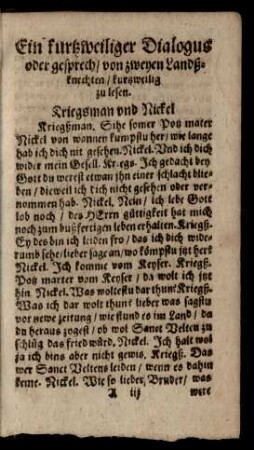 Ein kurtzweiliger Dialogus
oder gesprech / von zweyen Landß-
knechten / kurtzweilig
zu lesen.
Kriegsman vnd Nickel
Kriegßman. Sihe somer Potz mater
Nickel von wannen kumpstu her / wie lange
hab ich dich nit gesehen. Nickel. Vnd ich dich
wider mein Gesell. Kriegs. Ich gedacht bey
Gott du werest etwan jhn einer schlacht blie-
ben / dieweil ich dich nicht gesehen oder ver-
nommen hab. Nickel. Nein / ich lebe Gott
lob noch / des HErrn güttigkeit hat mich
noch zum bußfertigen leben erhalten. Kriegß.
Ey des bin ich leiden fro / das ich dich wide-
rumb sehe / lieber sage an / wo kömpstu jtzt her
Nickel. Ich komme vom Keyser. Kriegß.
Potz marter vom Keyser / da wolt ich jtzt
hin. Nickel. Was woltestu dar thun? Kriegß.
Was ich dar wolt thun? lieber was sagstu
vor newe zeitung / wie stund es im Land / da
du heraus zogest / ob wol Sanct Velten zu
schlüg das fried würd. Nickel. Ich halt wol
ja ich bins aber nicht gewis. Kriegß. Das
wer Sanct Veltens leiden / wenn es dahin
keme. Nickel. Wie so lieder Bruder / was
A iij were